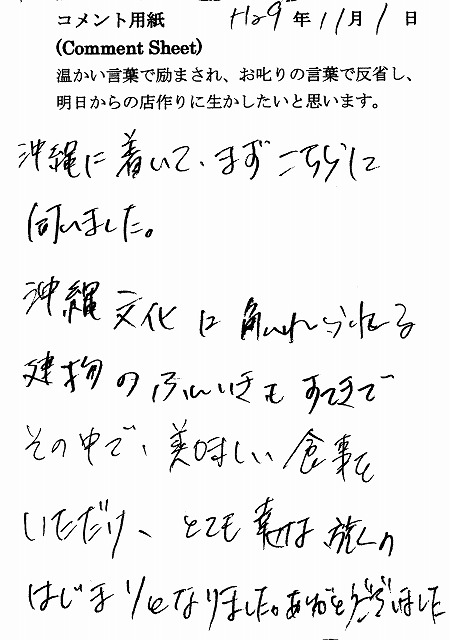 コメント用紙 H29年11月1日
(Comment Sheet)
温かい言葉で励まされ、お叱りの言葉で反省し、
明日からの店作りに生かしたいと思います。
沖縄に着いて、まずこちらに
伺いました。
沖縄文化に触れられる
建物のふんいきもすてきで
その中で、美味しい食事を
いただけ、とても幸せな旅の
はじまりとなりました。ありがとうございました